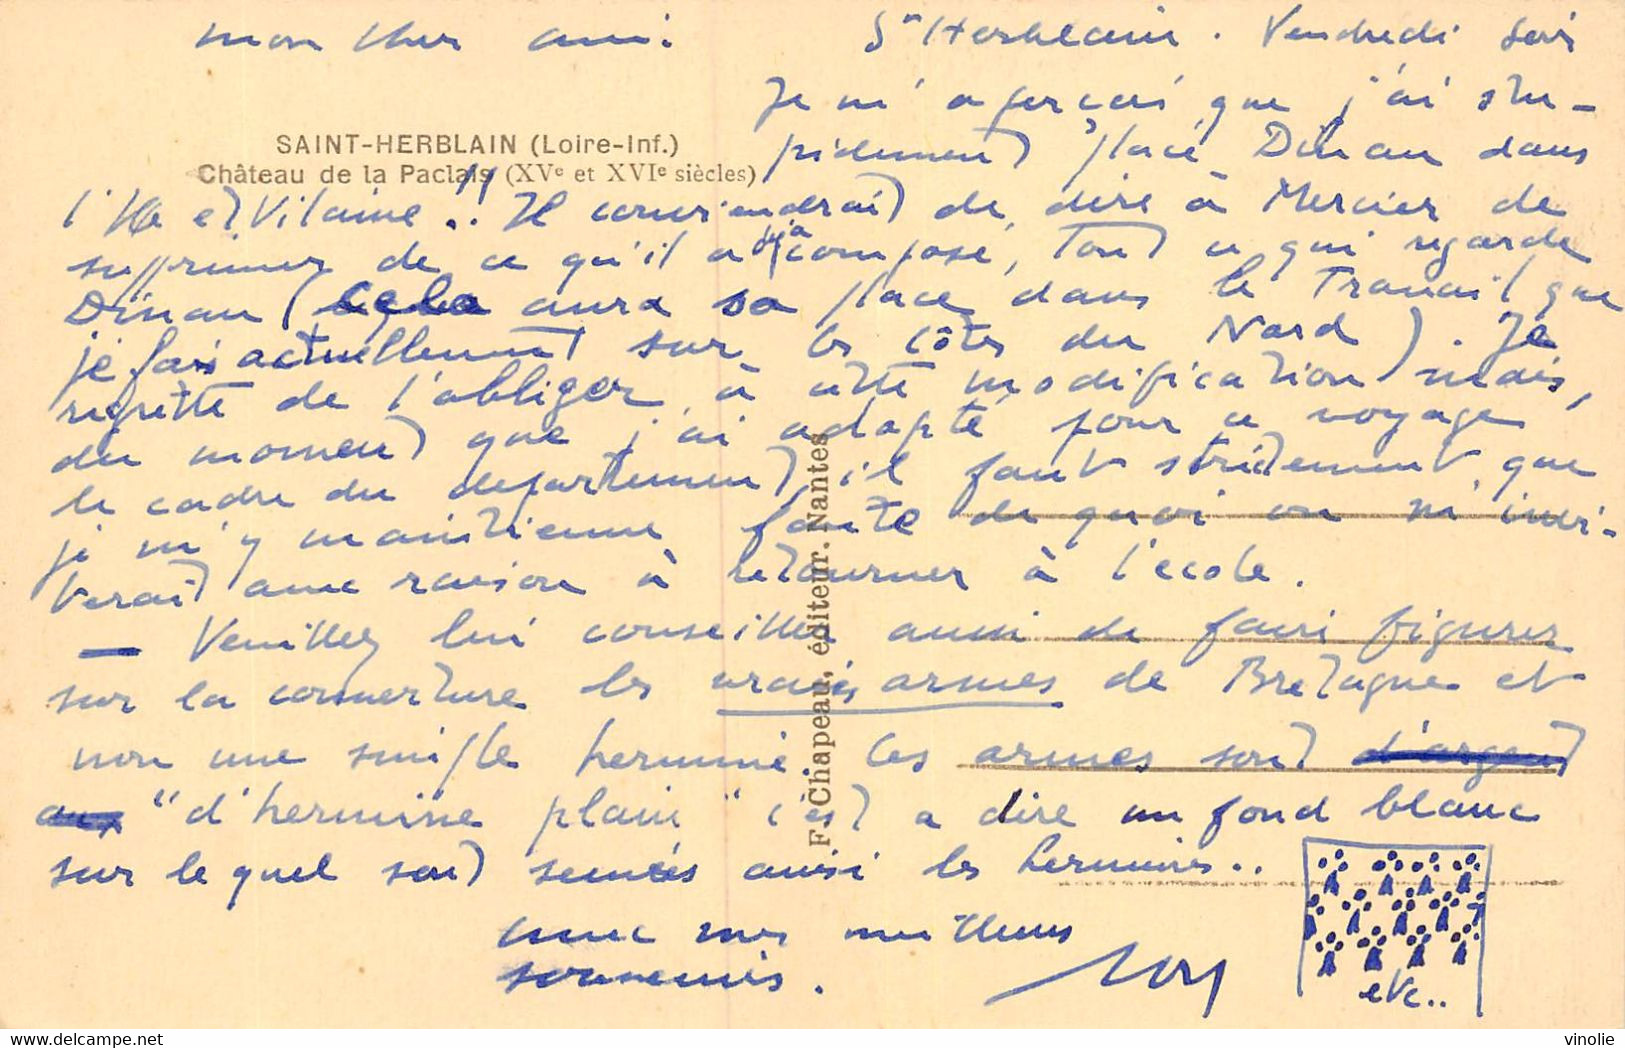 mon cher ami. St Herblain. Vendredi soir
Je m'aperçois que j'ai stu-
SAINT-HERBLAIN (Loire-Inf.)
pidement placé Dinan dans
Château de la Paclais (XVe et XVIe siècles)
l'Ille et Vilaine !! Il conviendrait de dire à Mercier de
supprimer de ce qu'il a déjà composé, tout ce qui regarde
Dinan (cela aura sa place dans le Travail que
je fais actuellement sur les Côtes du Nord). Je
regrette de l'obliger à cette modification mais,
du moment que j'ai adopté pour ce voyage
le cadre du département, il faut strictement que
je m'y maintienne faute de quoi on m'invi-
terait avec raison à retourner à l'école.
— Veuillez lui conseiller aussi de faire figurer
sur la couverture les vraies armes de Bretagne et
non une simple hermine. Les armes sont d'argent
aux "d'hermine plain" c'est a dire un fond blanc
sur lequel sont semées ainsi les hermines..
avec mes meilleurs
souvenirs.
etc..
F. Chapeau, éditeur. Nantes
delcampe.net
vinolie